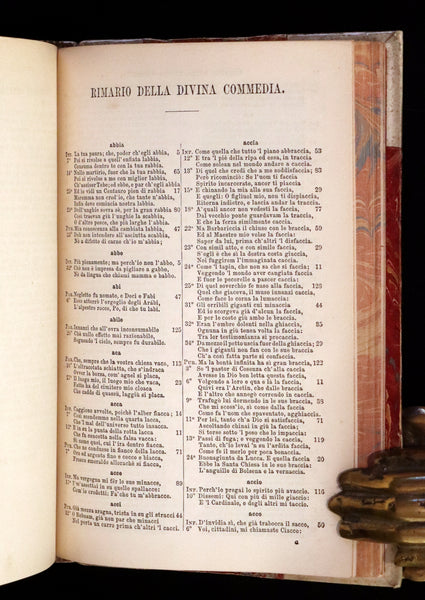 RIMARIO DELLA DIVINA COMMEDIA.
abbia
INF. La tua paura; che, poder ch'egli abbia, 5
7° Poi si rivolse a quell'enfiata labbia,
Consuma dentro te con la tua rabbia.
14° Nello martiro, fuor che la tua rabbia, 65
Poi si rivolse a me con miglior labbia,
Ch'assiser Tebe; ed ebbe, e par ch'egli abbia
25° Ed io vidi un Centauro pien di rabbia 17
Maremma non cred'io, che tante n'abbia,
Infin dove comincia nostra labbia.
29° Dell'unghie sovra sè, per la gran rabbia 80
Così traevan giù l'unghie la scabbia,
O d'altro pesce, che più larghe l'abbia.
PUR. Mia conoscenza alla cambiata labbia, 47
23° Deh non intendere all'asciutta scabbia,
Nè a difetto di carne ch'io m'abbia;
abbo
INF. Più pienamente; ma perch'io non l'abbo, 5
32° Chè non è impresa da pigliare a gabbo,
Nè da lingua che chiami mamma o babbo.
abi
PAR. Negletto fu nomato, e Deci e Fabi 47
6° Esso atterrò l'orgoglio degli Aràbi,
L'alpestre rocce, Po, di che tu labi.
abile
PUR. Insanni che all'erra inconsumabile 125
Chè sullo effetto mai razionabile,
Seguendo 'l cielo, sempre fu durabile.
aca
PUR. Che, sempre che la vostra chiesa vaca, 113
L'oltracotata schiatta, che s'indraca
Over la borsa, com'agnel si placa,
27° Il luogo mio, il luogo mio che vaca, 23
Fatto ha del cimiterio mio cloaca
Che cadde di quassù, laggiù si placa.
acca
INF. Caggiono avvolte, poichè l'alber fiacca; 14
7° Così scendemmo nella quarta lacca,
Che 'l mal dell'universo tutto insacca.
12° E 'n su la punta della rotta lacca
Che fu concetta nella falsa vacca:
Sì come quei, cui l'ira dentro fiacca.
PUR. Che ne conduca in fianco della lacca, 71
7° Oro ed argento fino e cocco e biacca,
Fresco smeraldo allorachè si fiacca,
acce
INF. Ma vergogna mi fêr le sue minacce, 89
17° I' m'assettai in su quelle spallacce:
Com'io credetti: Fa' che tu m'abbracce.
acci
PUR. Già mezza aragna, trista in su gli stracci 44
12° O Roboam, già non par che minacci
Nel porta un carro prima ch'altri 'l cacci.
accia
INF. Come quella che tutto 'l piano abbraccia, 53
12° E tra 'l piè della ripa ed essa, in traccia
Come solean nel mondo andare a caccia.
13° Di quel che credi che a me soddisfaccia; 83
Però ricominciò: Se l'uom ti faccia
Spirito incarcerato, ancor ti piaccia
15° E chinando la mia alla sua faccia, 29
E quegli: O figliuol mio, non ti dispiaccia,
Ritorna indietro, e lascia andar la traccia.
18° A' quali ancor non vedesti la faccia, 77
Dal vecchio ponte guardavam la traccia,
E che la ferza similmente caccia.
22° Ma Barbariccia il chiuse con le braccia, 59
Ed al Maestro mio volse la faccia:
Saper da lui, prima ch'altri 'l disfaccia.
23° Con simil atto, e con simile faccia, 29
S'egli è che sì la destra costa giaccia,
Noi fuggirem l'immaginata caccia.
24° Come 'l tapin, che non sa che si faccia; 11
Veggendo 'l mondo aver cangiata faccia
E fuor le pecorelle a pascer caccia:
25° Di quel soverchio fe naso alla faccia, 125
Quel che giaceva, il muso innanzi caccia,
Come face le corna la lumaccia:
31° Gli orribili giganti cui minaccia 44
Ed io scorgeva già d'alcun la faccia,
E per le coste giù ambo le braccia.
32° Eran l'ombre dolenti nella ghiaccia, 35
Ognuna in giù tenea volta la faccia:
Tra lor testimonianza si procaccia.
34° Da mezzo il petto uscia fuor della ghiaccia; 29
Che i giganti non fan con le sue braccia:
Ch'a così fatta parte si confaccia.
PUR. Ma la bontà infinita ha sì gran braccia, 122
3° Se 'l pastor di Cosenza ch'alla caccia
Avesse in Dio ben letta questa faccia,
6° Volgendo a loro e qua e là la faccia, 11
Quivi era l'Aretin, che dalle braccia
E l'altro che annegò correndo in caccia.
9° Trafugò lui dormendo in le sue braccia, 38
Che mi scoss'io, sì come dalla faccia
Come fa l'uom che spaventato, agghiaccia.
11° Per lui, tanto ch'a Dio si satisfaccia, 71
Ascoltando chinai in giù la faccia;
Si torse sotto 'l peso che lo impaccia:
13° Passi di fuga; e veggendo la caccia, 119
Tanto, ch'io leva' n su l'ardita faccia,
Come fe il merlo per poca bonaccia.
24° Buonagiunta da Lucca. E quella faccia 20
Ebbe la Santa Chiesa in le sue braccia:
L'anguille di Bolsena e la vernaccia.
accio
INF. Perch'io pregai lo spirito più avaccio, 116
10° Dissemi: Qui con più di mille giaccio:
E 'l Cardinale, e degli altri mi taccio.
acco
INF. D'invidia sì, che già trabocca il sacco, 50
6° Voi, cittadini, mi chiamaste Ciacco:
a